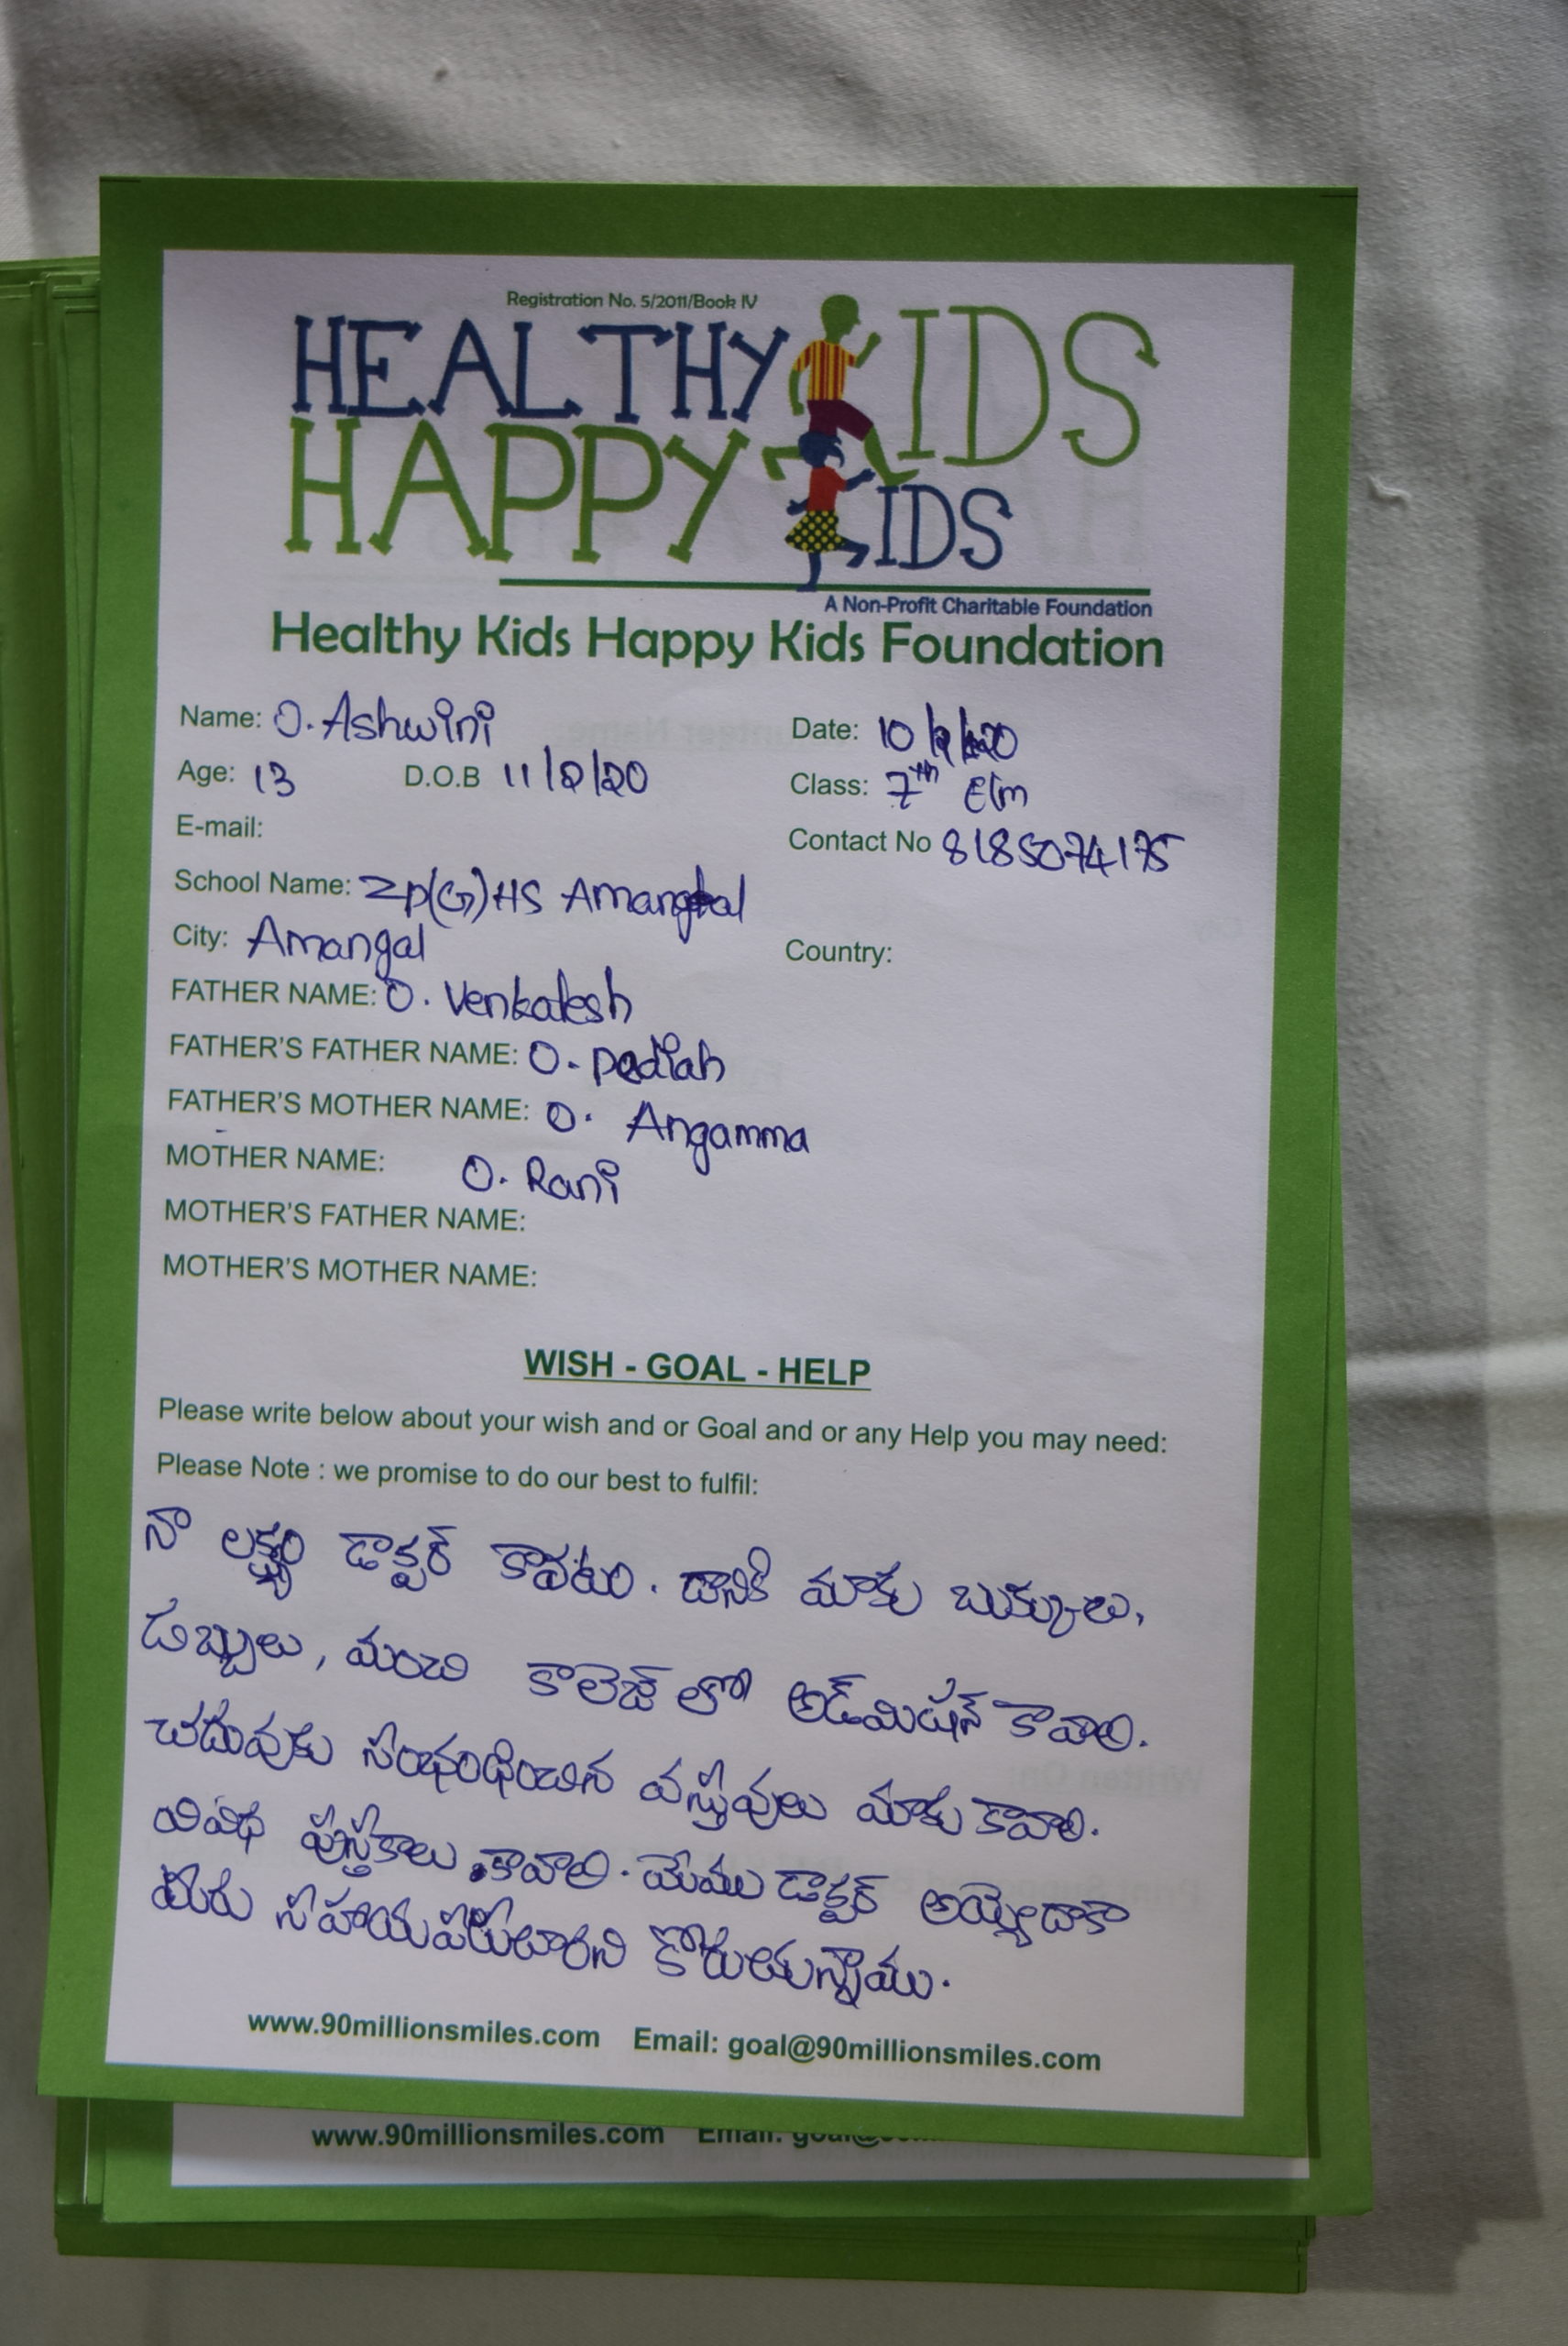 Registration No. 5/2011/Book IV
HEALTHY KIDS
HAPPY KIDS
A Non-Profit Charitable Foundation
Healthy Kids Happy Kids Foundation
Name: O. Ashwini Date: 10/2/2020
Age: 13 D.O.B 11/2/20 Class: 7th E/m
E-mail: Contact No 8185074175
School Name: ZP(G)HS Amangal
City: Amangal Country:
FATHER NAME: O. Venkatesh
FATHER'S FATHER NAME: O. Pediah
FATHER'S MOTHER NAME: O. Angamma
MOTHER NAME: O. Rani
MOTHER'S FATHER NAME:
MOTHER'S MOTHER NAME:
WISH - GOAL - HELP
Please write below about your wish and or Goal and or any Help you may need:
Please Note : we promise to do our best to fulfil:
నా లక్ష్యం డాక్టర్ కావటం. దానికి మాకు బుక్కులు,
డబ్బులు, మంచి కాలెజ్ లో అడ్మిషన్ కావాలి.
చదువుకు సంభంధించిన వస్తువులు మాకు కావాలి.
వివిధ పుస్తకాలు కావాలి. మేము డాక్టర్ అయ్యేదాకా
మీరు కోరుతున్నాము.
www.90millionsmiles.com Email: goal@90millionsmiles.com
www.90millionsmiles.com Email: